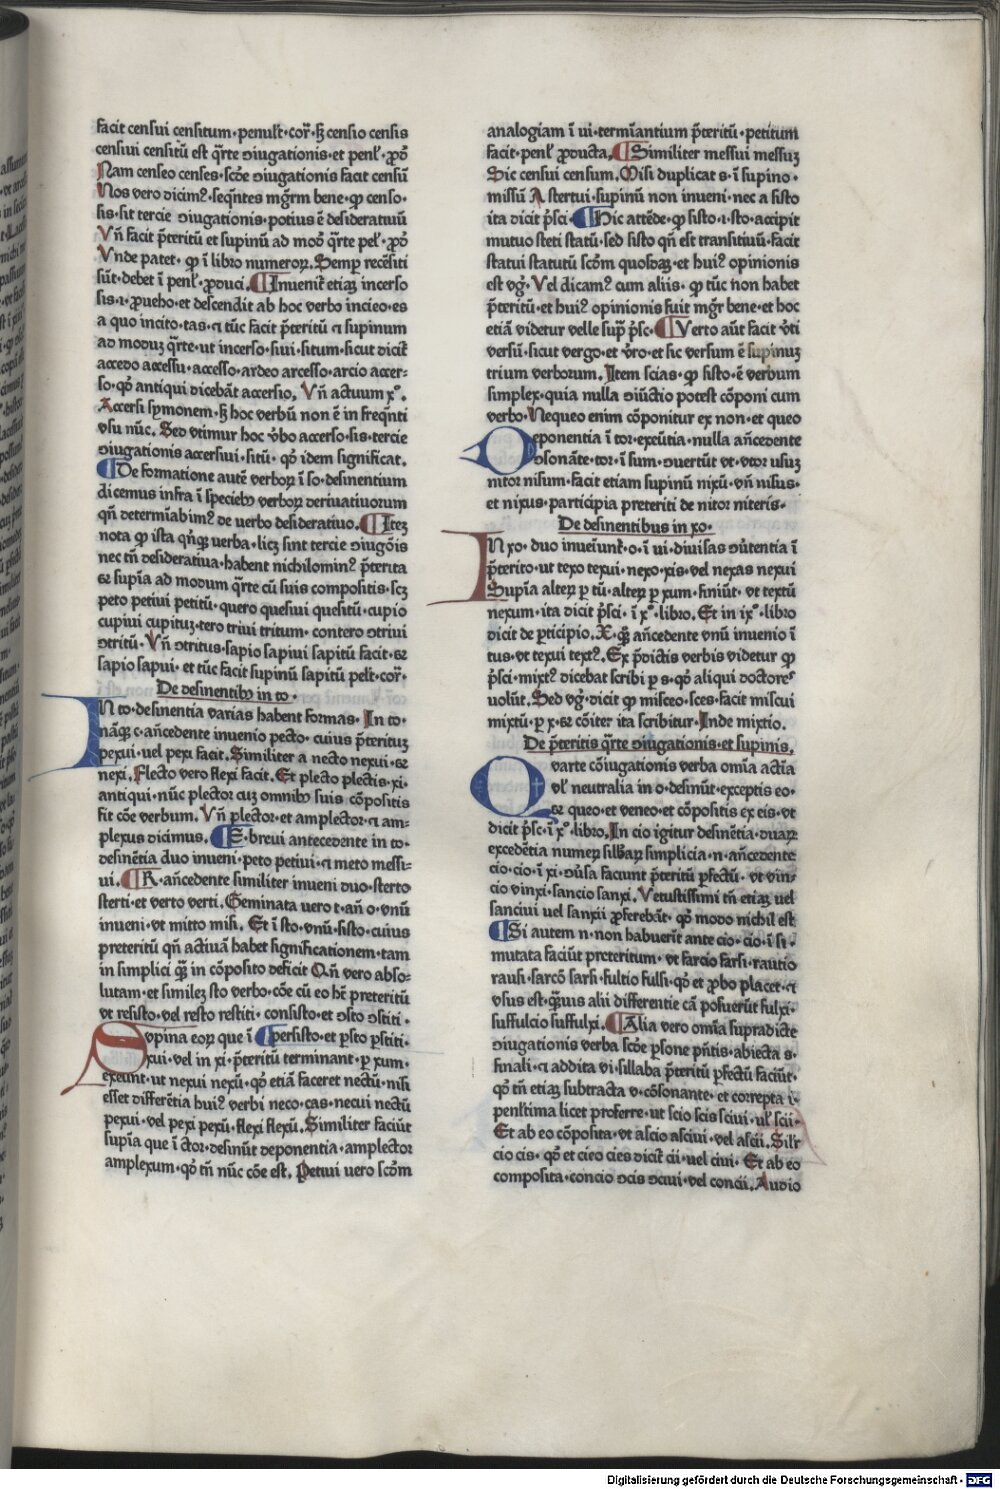 facit censui censitum·penult·cor̄·sꝫ censio censis
censui censitū est q̄rte ↄiugationis·et penl̄·ꝓdō
Nam censeo censes·scd̄e ↄiugationis facit censū
Nos vero dicimꝰ·seq̄ntes mg̃rm bene·ꝙ censo·
sis·sit tercie ↄiugationis·potius ē desideratiuū
Vn̄ facit p̄teritū et supinū ad modū q̄rte pel̄·ꝓdō
Vnde patet·ꝙ ī libro numeroꝝ. Semꝑ recēsiti
sūt·debet ī penl̄·ꝓduci. ¶Inuenit̄ etiaꝫ incerso
sis·ı·ꝓueho·et descendit ab hoc verbo incieo·es
a quo incito·tas·⁊ tūc facit p̄teritū ⁊ supinum
ad moduꝫ q̄rte·ut incerso·siui·situm·sicut dicit̄
accedo accessu·accesso·ardeo arcesso·arcio accer⸗
so·qd̄ antiqui dicebāt accersio. Vn̄ actuum xº.
Accersi symonem·sꝫ hoc verbū non ē in freq̄nti
vsu nūc. Sed vtimur hoc v̄bo accerso·sis·tercie
ↄiugationis accersiui·sitū·qd̄ idem significat.
¶De formatione autē verboꝝ ī so·desinentium
dicemus infra ī speciebꝰ verboꝝ deriuatiuorum
qn̄ determīabimꝰ de uerbo desideratiuo. ¶Iteꝫ
nota ꝙ ista qn̄qꝫ verba·licꝫ sint tercie ↄiugōis
nec tn̄ desideratiua·habent nichilominꝰ p̄terita
⁊ supīa ad modum q̄rte cū suis compositis·scꝫ
peto petiui petitū·quero quesiui quesitū·cupio
cupiui cupituꝫ·tero triui tritum·contero ↄtriui
ↄtritū·Vn̄ ↄtritus·sapio sapiui sapitū facit·⁊
sapio sapui·et tūc facit supinū sapitū pelt̄·cor̄·
De desinentibꝰ in to·
In to·desinentia varias habent formas·In to·
nāqꝫ c·an̄cedente inuenio pecto·cuius p̄terituꝫ
pexui·uel pexi facit. Similiter a necto nexui·⁊
nexi. Flecto vero flexi facit. Et plecto plectis·xi·
antiqui·nūc plector cuꝫ omnibꝰ suis cōpositis
fit cōe verbum. Vn̄ plector·et amplector·⁊ am⸗
plexus dicimus. ¶E·breui antecedente in to·
desinētia duo inueni·peto petiui·⁊ meto messi⸗
ui. ¶R·an̄cedente similiter inueni duo·sterto
sterti·et verto verti. Geminata uero t·an̄ o·vnū
inueni·vt mitto misi. Et ī sto·vnū·sisto·cuius
preteritū qn̄ actiuā habet significationem·tam
in simplici qꝫ in cōposito deficit Qn̄ vero abso⸗
lutam·et similez sto verbo·cōe cū eo hꝫ preteritū
vt resisto·vel resto restiti·consisto·et ↄsto ↄstiti·
Supina eoꝝ que ī ¶persisto·et ꝑsto ꝑstiti·
xui·vel in xi·p̄teritū terminant·ꝑ xum·
exeunt·ut nexui nexū·qd̄ etiā faceret nectū·nisi
esset differētia huiꝰ verbi neco·cas·necui nectū
pexui·vel pexi pexū·flexi flexū. Similiter faciūt
supīa que ī ctor·desinūt deponentia·amplector
amplexum·qd̄ tn̄ nūc cōe est. Petiui uero scd̄m
analogiam ī ui·termīantium p̄teritū·petitum
facit·penl̄ ꝓducta. ¶Similiter messui messuꝫ
Sic censui censum. Misi duplicat s·ī supino·
missū A stertui·supinū non inueni·nec a sisto
ita dicit p̄sci·¶Hic attēde·ꝙ sisto·ı·sto·accipit
mutuo steti statū·sed sisto qn̄ est transitiuū·facit
statui statutū scd̄m quosdaꝫ·et huiꝰ opinionis
est vg̊·Vel dicamꝰ cum aliis·ꝙ tūc non habet
p̄teritū·et huiꝰ opinionis fuit mg̃r bene·et hoc
etiā videtur velle sup̄ p̄sc·¶Verto aūt facit v̄ti
versū·sicut vergo·et v̄ro·et sic versum ē supinuꝫ
trium verborum. Item scias·ꝙ sisto·ē verbum
simplex·quia nulla ↄiūctio potest cōponi cum
verbo·Nequeo enim cōponitur ex non·et queo
Deponentia ī tor·exeūtia·nulla an̄cedente
ↄsonāte·tor·ī sum·ↄuertūt vt·vtor usuꝫ
nitor nisum·facit etiam supinū nixū·vn̄ nisus·
et nixus·participia preteriti de nitor niteris·
De desinentibus in xo·
In xo·duo inueīunt̄·o·ī ui·diuisas ↄūtentia ī
p̄terito·ut texo texui·nexo·xis·vel nexas nexui
Supīa alteꝝ ꝑ tū·alteꝝ ꝑ xum·finiūt·vt textū
nexum·ita dicit p̄sci·ī xº·libro. Et in ixº·libro
dicit de ꝑticipio. X·qꝫ an̄cedente vnū inuenio ī
tus·vt texui textꝰ. Ex p̄dictis verbis videtur ꝙ
p̄sci·mixtꝰ dicebat scribi ꝑ s·qd̄ aliqui doctores
uolūt. Sed vg̊·dicit ꝙ misceo·sces·facit miscui
mixtū·ꝑ x·⁊ cōiter ita scribitur·Inde mixtio.
De p̄teritis q̄rte ↄiugationis·et supinis.
Quarte cōiugationis verba omīa actiua
vl̄ neutralia in o·desinūt·exceptis eo·
⁊ queo·et veneo·et cōpositis ex eis·vt
dicit p̄sc·ī xº·libro. In cio igitur desinētia·duaꝝ
excedētia numeꝝ silbaꝝ simplicia·n·an̄cedente
cio·cio·ī xi·ↄūsa faciunt p̄teritū ꝑfectū·vt vin⸗
cio vinxi·sancio sanxi. Vetustissimi tn̄ etiaꝫ uel
sanciui uel sanxii ꝓferebāt·qd̄ modo nichil est
¶Si autem n·non habuerīt ante cio·cio·ī si·
mutata faciūt preteritum·vt farcio farsi·raucio
rausi·sarcō sarsi·fultio fulsi·qd̄ et ꝓbo placet·⁊
vsus est·qꝫuis alii differentie cā posuerūt fulxi·
suffulcio suffulxi. ¶Alia vero omīa supradicte
ↄiugationis verba scd̄e ꝑsone pn̄tis·abiecta s·
finali·⁊ addita vi·sillaba p̄teritū ꝑfectū faciūt·
qd̄ tn̄ etiaꝫ subtracta v·cōsonante·et correpta i·
penl̄tima licet proferre·ut scio scis sciui·ul̄ scii·
Et ab eo cōposita·vt ascio asciui·vel ascii. Sil̄r
cio cis·qd̄ et cieo cies dicit̄ cii·uel ciui·Et ab eo
composita·concio ↄcis ↄciui·vel concii. Audio
Digitalisierung gefördert durch die Deutsche Forschungsgemeinschaft · DFG